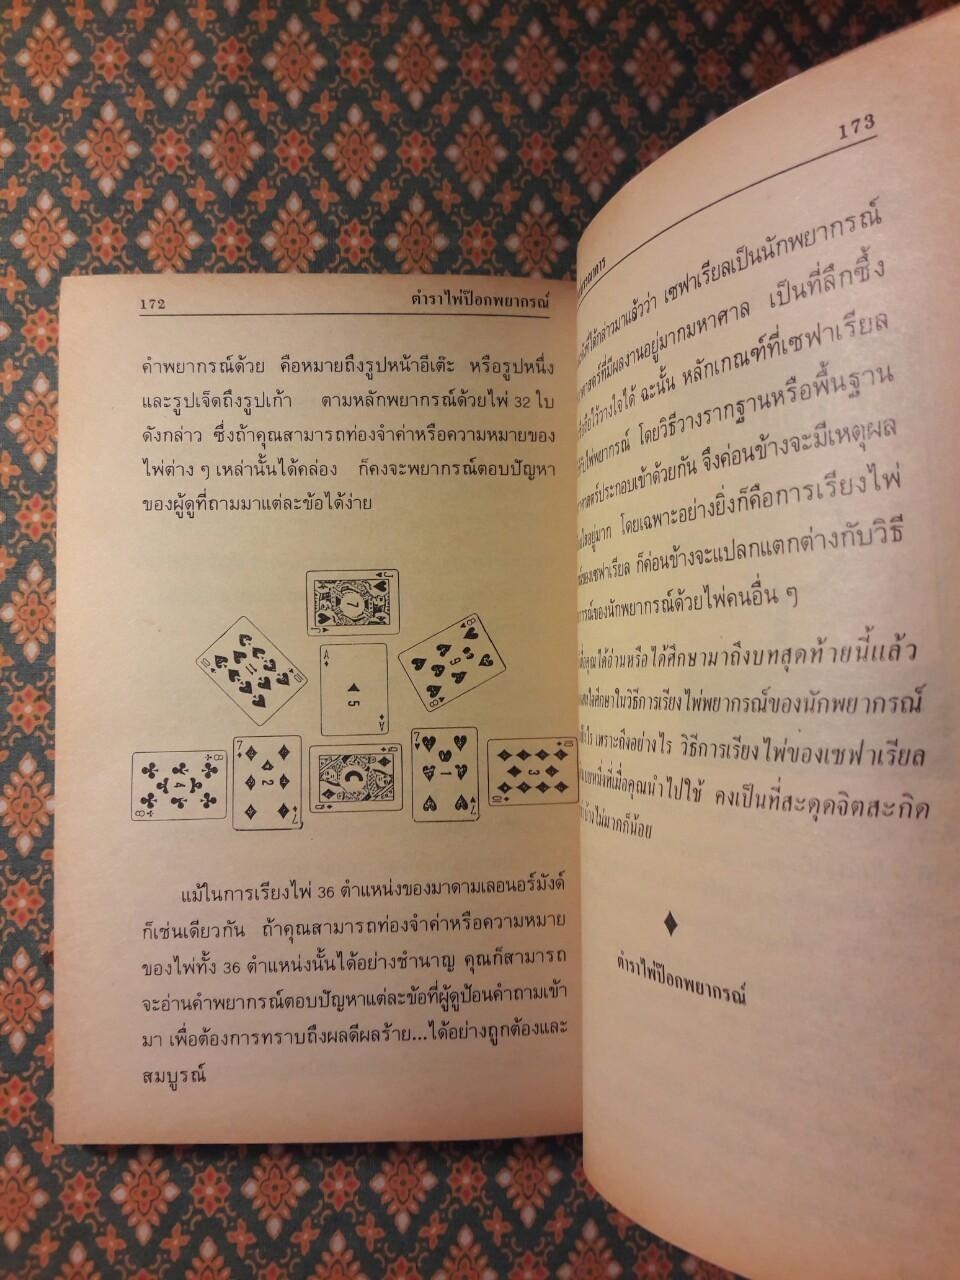 172 ตำราไพ่ป๊อกพยากรณ์
คำพยากรณ์ด้วย คือหมายถึงรูปหน้าอีเต๊ะ หรือรูปหนึ่ง
และรูปเจ็ดถึงรูปเก้า ตามหลักพยากรณ์ด้วยไพ่ 32 ใบ
ดังกล่าว ซึ่งถ้าคุณสามารถท่องจำค่าหรือความหมายของ
ไพ่ต่าง ๆ เหล่านั้นได้คล่อง ก็คงจะพยากรณ์ตอบปัญหา
ของผู้ดูที่ถามมาแต่ละข้อได้ง่าย
J 7 J
10 11 10
A 5 A
8 9 8
8 4 8
7 2 7
Q C Q
7 1 7
10 3 10
แม้ในการเรียงไพ่ 36 ตำแหน่งของมาดามเลอนอร์มังด์
ก็เช่นเดียวกัน ถ้าคุณสามารถท่องจำค่าหรือความหมาย
ของไพ่ทั้ง 36 ตำแหน่งนั้นได้อย่างชำนาญ คุณก็สามารถ
จะอ่านคำพยากรณ์ตอบปัญหาแต่ละข้อที่ผู้ดูป้อนคำถามเข้า
มา เพื่อต้องการทราบถึงผลดีผลร้าย...ได้อย่างถูกต้องและ
สมบูรณ์
173
ได้กล่าวมาแล้วว่า เซฟาเรียลเป็นนักพยากรณ์
ที่มีผลงานอยู่มากมหาศาล เป็นที่ลึกซึ้ง
ไว้วางใจได้ ฉะนั้น หลักเกณฑ์ที่เซฟาเรียล
ไพ่พยากรณ์ โดยวิธีวางรากฐานหรือพื้นฐาน
ประกอบเข้าด้วยกัน จึงค่อนข้างจะมีเหตุผล
อยู่มาก โดยเฉพาะอย่างยิ่งก็คือการเรียงไพ่
ของเซฟาเรียล ก็ค่อนข้างจะแปลกแตกต่างกับวิธี
ของนักพยากรณ์ด้วยไพ่คนอื่น ๆ
คุณได้อ่านหรือได้ศึกษามาถึงบทสุดท้ายนี้แล้ว
ศึกษาในวิธีการเรียงไพ่พยากรณ์ของนักพยากรณ์
เพราะถึงอย่างไร วิธีการเรียงไพ่ของเซฟาเรียล
ที่เมื่อคุณนำไปใช้ คงเป็นที่สะดุดจิตสะกิด
ไม่มากก็น้อย
ตำราไพ่ป๊อกพยากรณ์